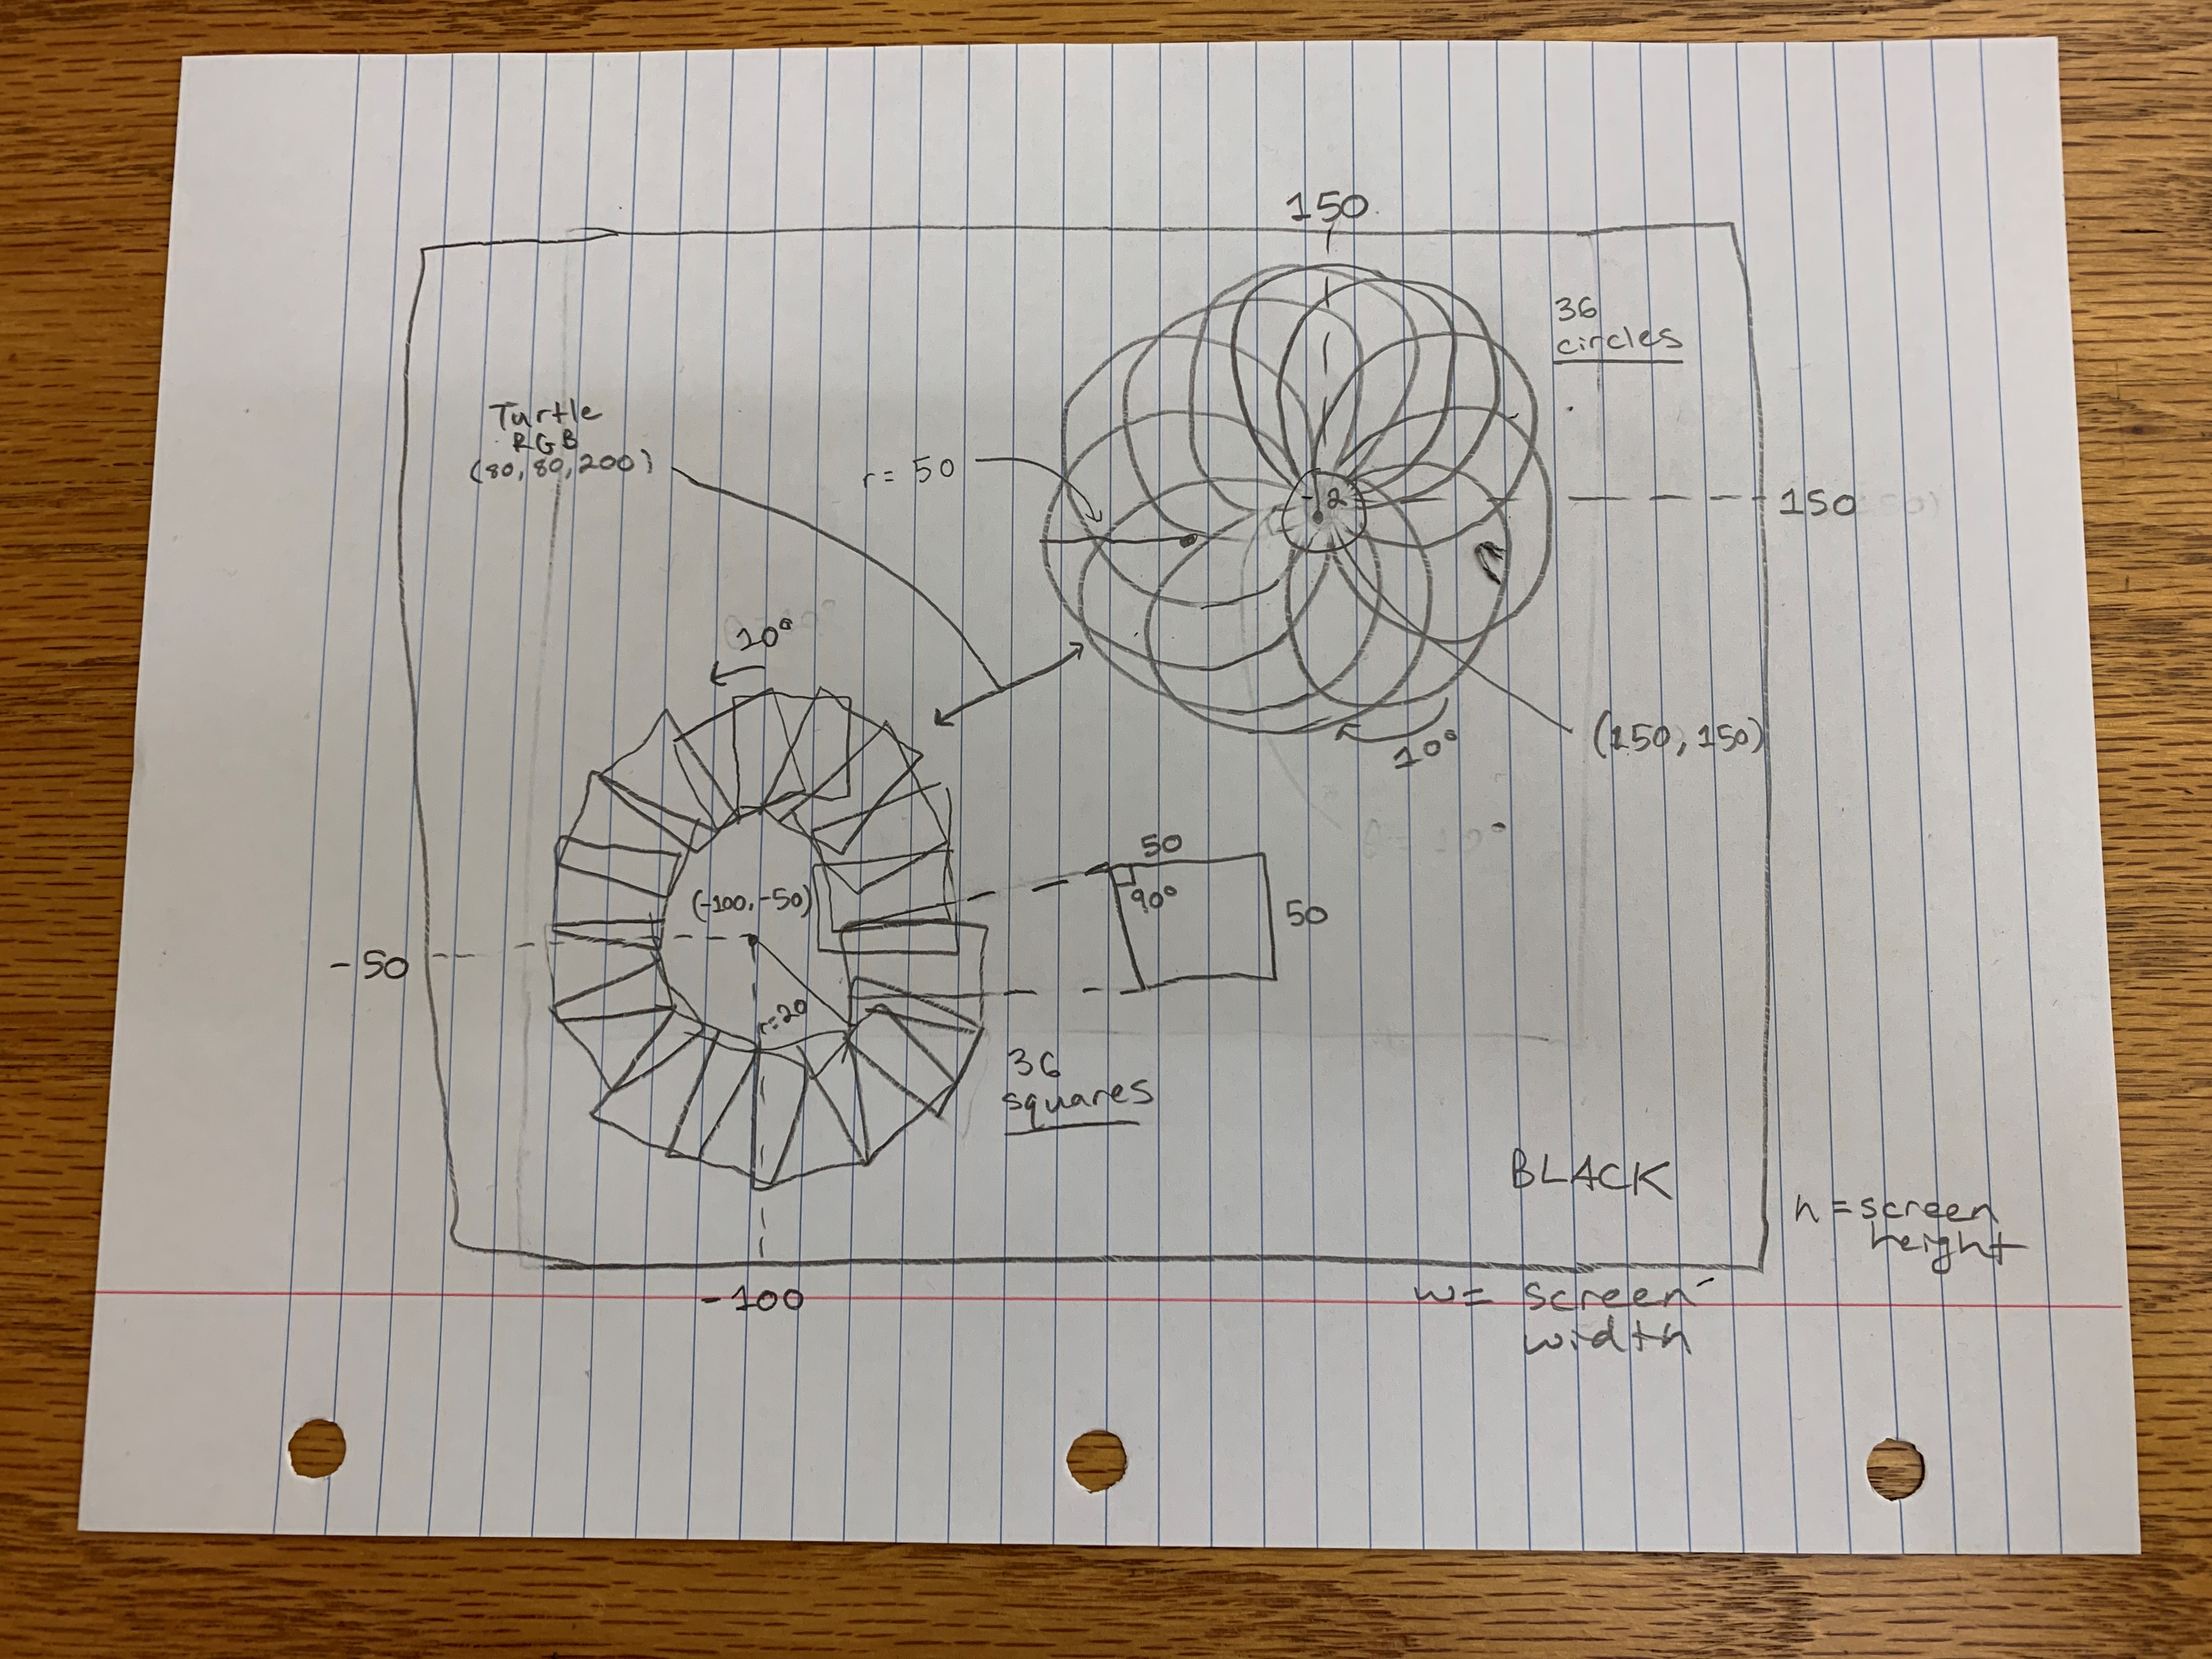 150
36
circles
Turtle
RGB
(80, 80, 200)
r= 50
2
150
10°
(150, 150)
10°
50
90°
50
(-100, -50)
-50
r=20
36
squares
BLACK
h = screen
height
-100
w= screen
width